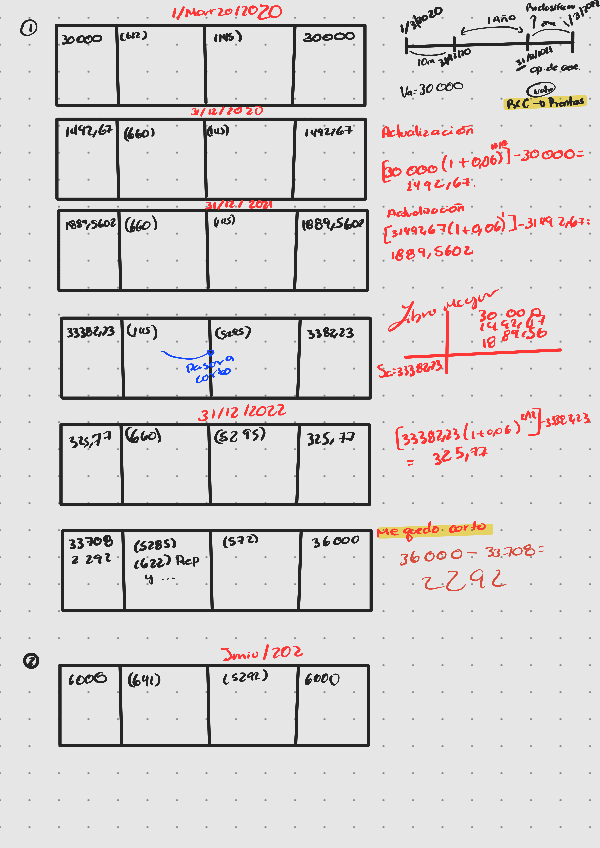 1/Marzo/2020
①
30000 (622) (145) 30000
1/3/2020
1 Año
1/3/2022
10m 31/12/20
31/12/2021
op. de
Va=30 000
Nota
31/12/2020
1492,67 (660) (145) 1492,67
Actualización
[30 000 (1+0,06)^10/12]-30000=
1492,67.
31/12/2021
1889,5602 (660) (145) 1889,5602
Actualización
[31492,67(1+0,06)^1]-31492,67=
1889,5602
Libro Mayor
30.000
1492,67
1889,56
Sa:33382,23
33382,23 (145) (5285) 33382,23
Pasar a
corto
31/12/2022
325,77 (660) (5295) 325,77
[33382,23(1+0,06)^2/12]-33382,23
= 325,77
Me quedo corto
33708 (5285) (572) 36000
2292 (622) Rep
y ...
36000 - 33.708=
2292
②
Junio/202
6000 (641) (5292) 6000